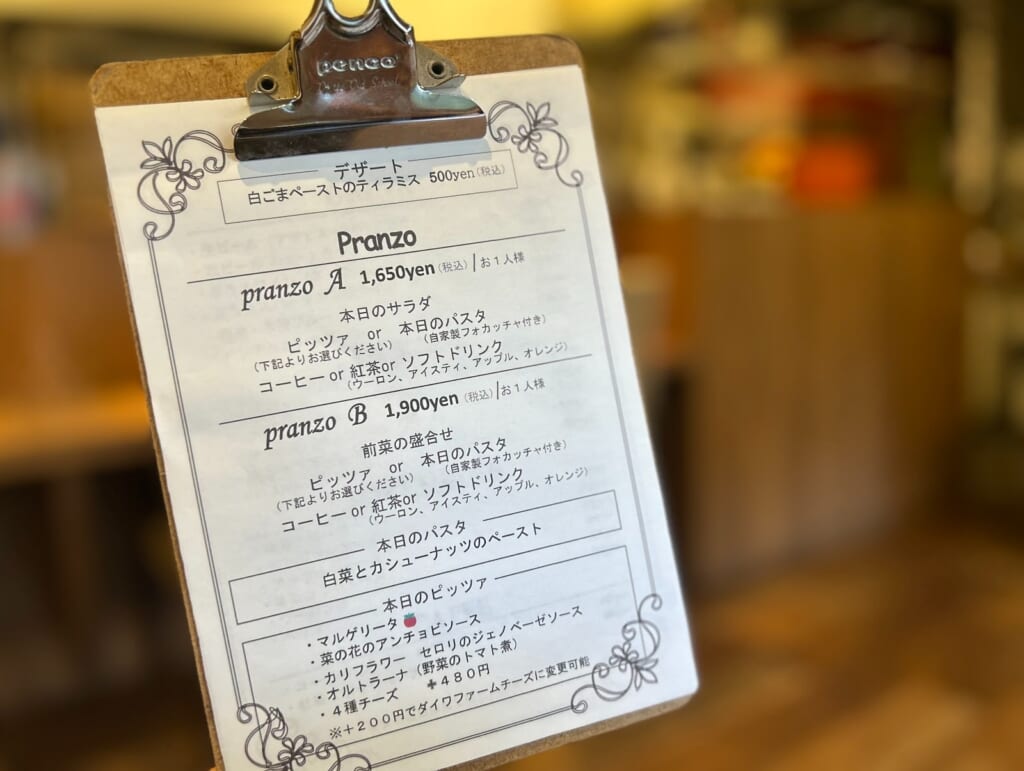 penco
デザート
白ごまペーストのティラミス 500yen(税込)
Pranzo
pranzo A 1,650yen(税込)/お1人様
本日のサラダ
ピッツァ or 本日のパスタ
(下記よりお選びください) (自家製フォカッチャ付き)
コーヒー or 紅茶or ソフトドリンク
(ウーロン、アイスティ、アップル、オレンジ)
pranzo B 1,900yen(税込)/お1人様
前菜の盛合せ
ピッツァ or 本日のパスタ
(下記よりお選びください) (自家製フォカッチャ付き)
コーヒー or 紅茶or ソフトドリンク
(ウーロン、アイスティ、アップル、オレンジ)
本日のパスタ
白菜とカシューナッツのペースト
本日のピッツァ
・マルゲリータ
・菜の花のアンチョビソース
・カリフラワー セロリのジェノベーゼソース
・オルトラーナ(野菜のトマト煮)
・4種チーズ +480円
※+200円でダイワファームチーズに変更可能